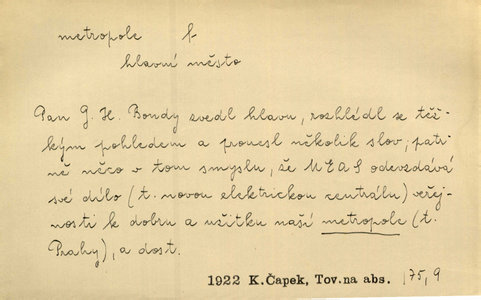 metropole f.
hlavní město
Pan G. H. Bondy zvedl hlavu, rozhlédl se těž-
kým pohledem a pronesl několik slov; patr-
ně něco v tom smyslu, že MEAS odevzdává
své dílo (t. novou elektrickou centrálu) veřej-
nosti k dobru a užitku naší metropole (t.
Prahy), a dost.
1922 K.Čapek, Tov.na abs. 175, 9